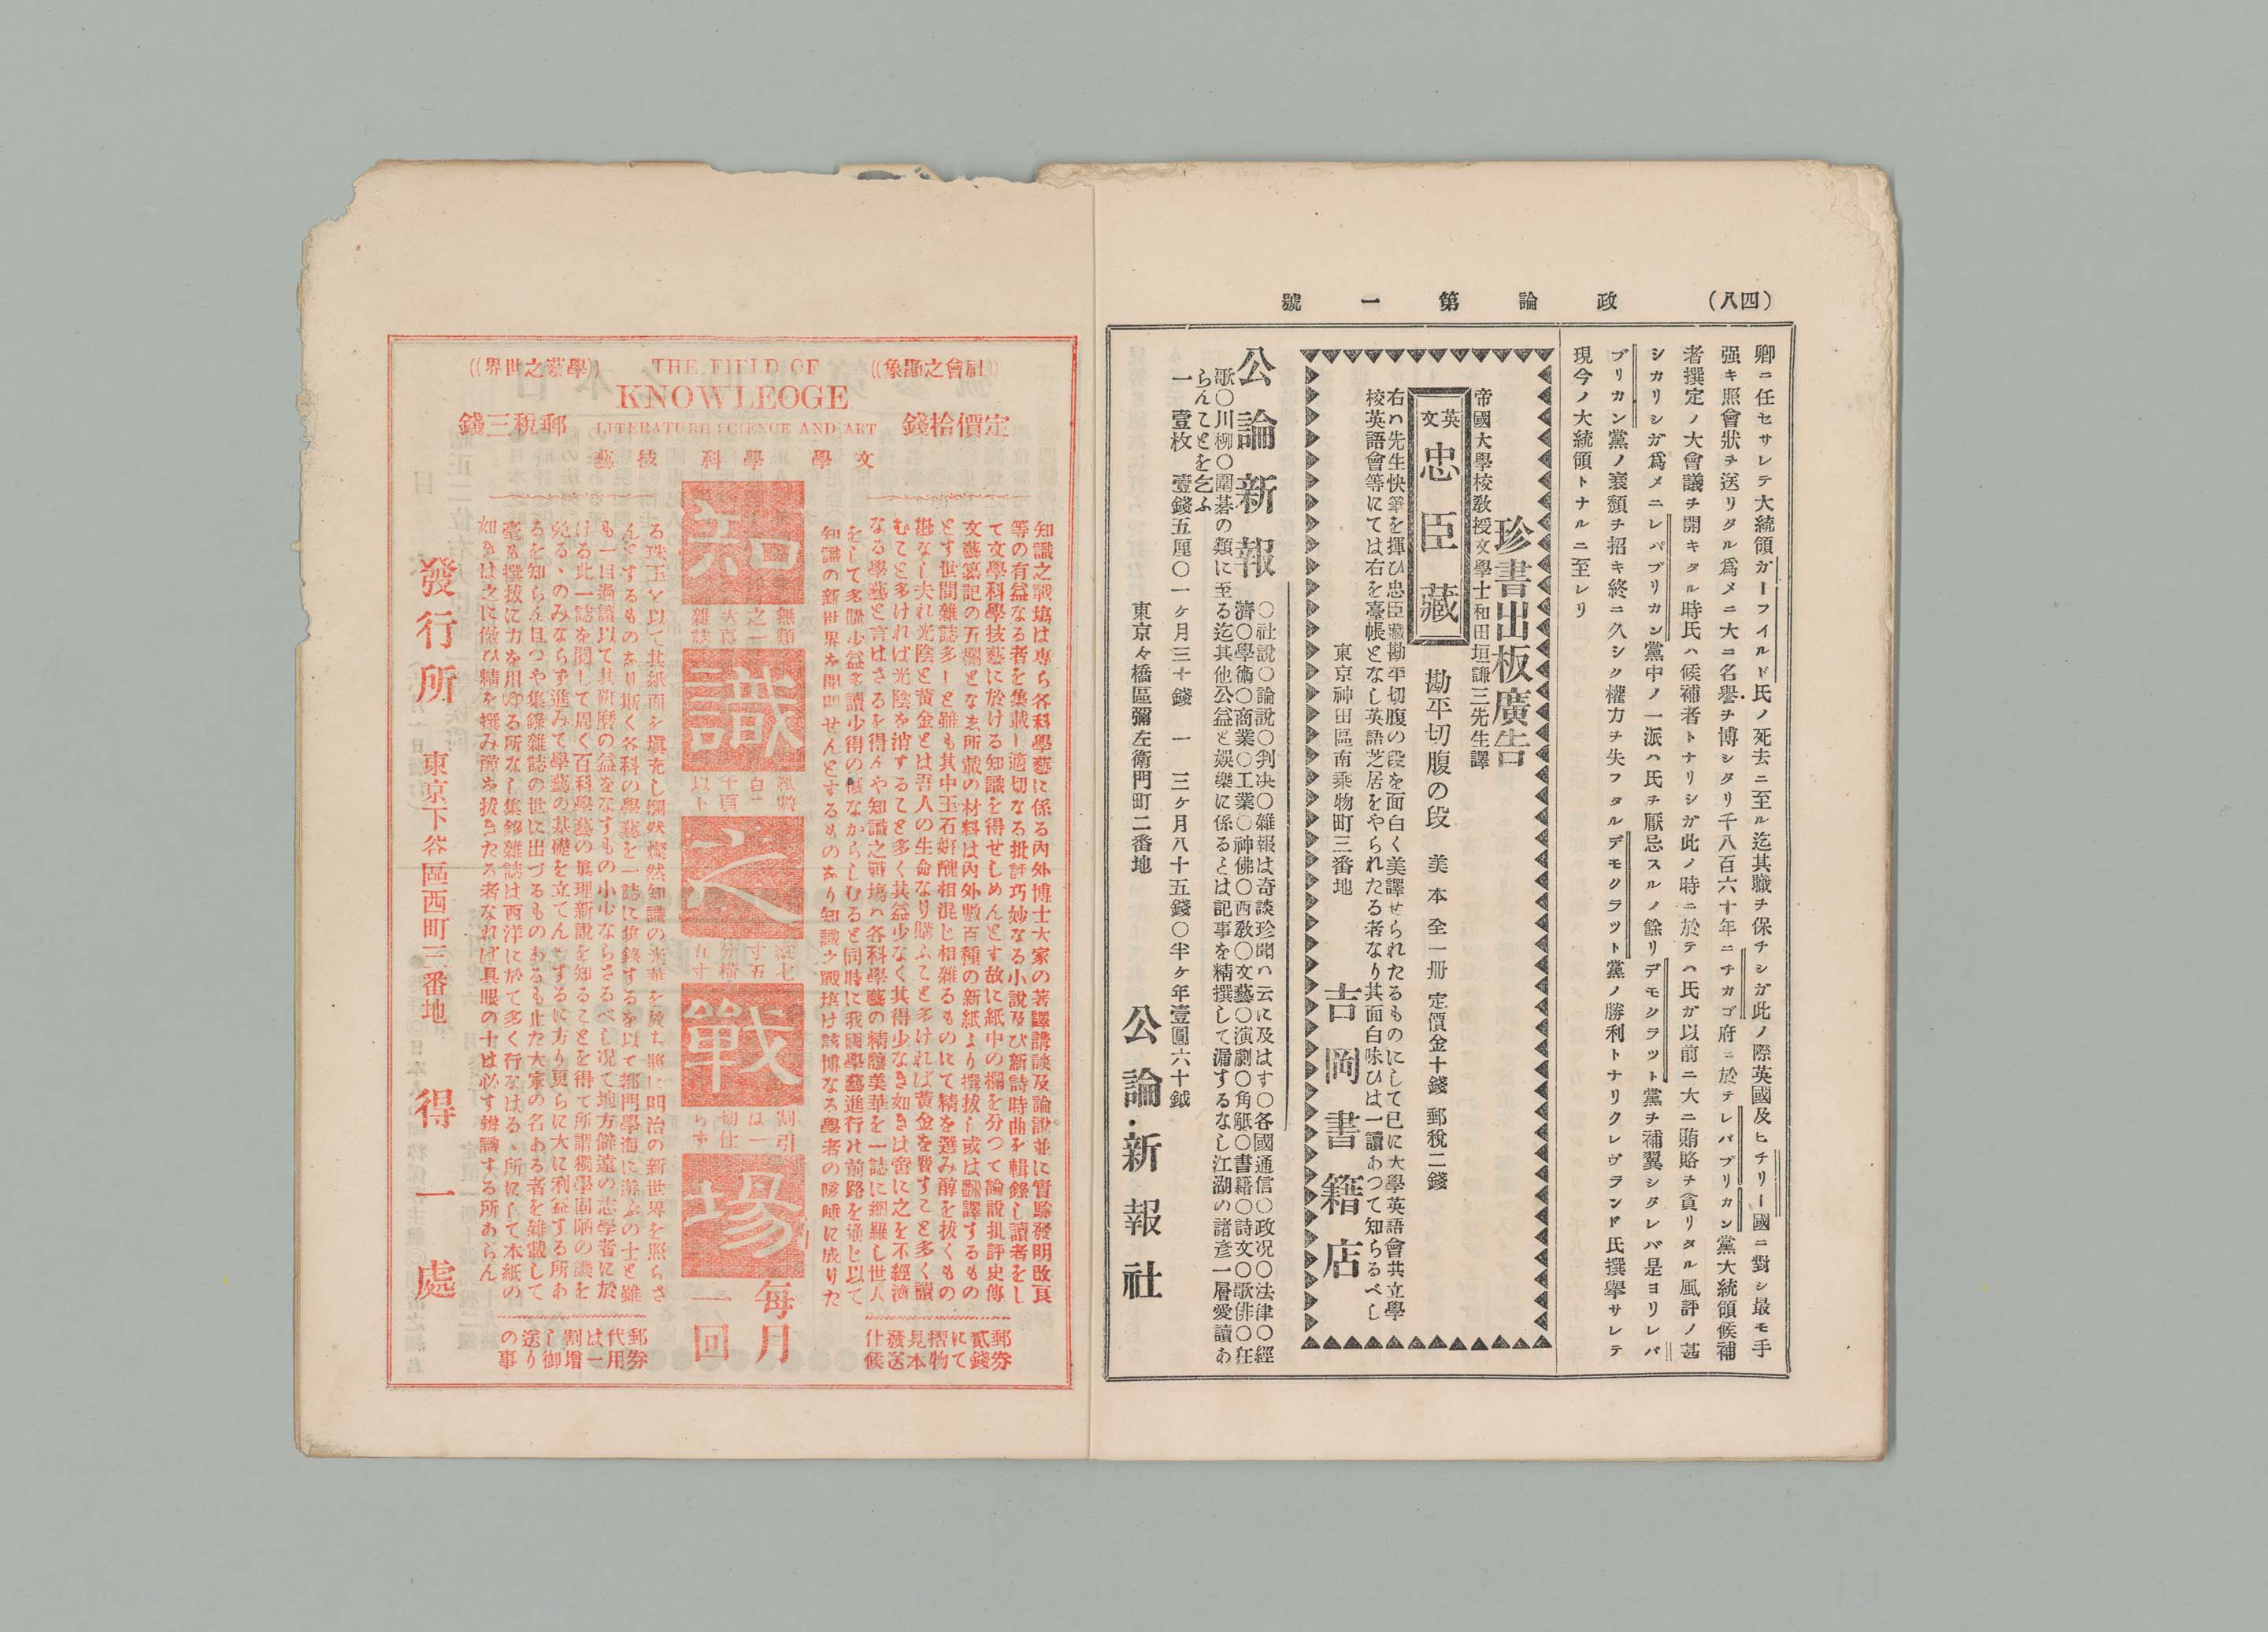 (四八)
政論第一號
卿ニ任セサレテ大統領ガーフイルド氏ノ死去ニ至ル迄其職チ保チシガ此ノ際英國及ヒチリー國ニ對シ最モ手
强キ照會狀チ送リタル爲メニ大ニ名譽チ博シタリ千八百六十年ニチカゴ府ニ於テレパブリカン黨大統領候補
者撰定ノ大會議チ開キタル時氏ハ候補者トナリシガ此ノ時ニ於テハ氏ガ以前ニ大ニ賄賂チ貪リタル風評ノ甚
シカリシガ爲メニレパブリカン黨中ノ一派ハ氏チ厭忌スルノ餘リデモクラット黨チ補翼シタレバ是ヨリレパ
ブリカン黨ノ衰頽チ招キ終ニ久シク權力チ失フタルデモクラット黨ノ勝利トナリクレヴランド氏撰擧サレテ
現今ノ大統領トナルニ至レリ
珍書出板廣告
帝國大學校敎授文學士和田垣謙三先生譯
英文 忠臣藏 勘平切腹の段 美本全一册 定價金十錢 郵稅二錢
右ハ先生快筆を揮ひ忠臣藏勘平切腹の段を面白く美譯せられたるものにして已に大學英語會共立學
校英語會等にては右を臺帳となし英語芝居をやられたる者なり其面白味ひは一讀あつて知らるべし
東京神田區南乘物町三番地 吉岡書籍店
公論新報
○社說○論說○判决○雜報は奇談珍聞ハ云に及はす○各國通信○政况○法律○經
濟○學術○商業○工業○神佛○西敎○文藝○演劇○角觝○書籍○詩文○歌俳○狂
歌○川柳○圍碁の類に至る迄其他公益と娛樂に係るとは記事を精撰して漏するなし江湖の諸彥一層愛讀あ
らんことを乞ふ
一 壹枚 壹錢五厘○一ヶ月三十錢 一 三ヶ月八十五錢○半ヶ年壹圓六十錢
東京々橋區彌左衛門町二番地 公論新報社
((社會之顯象))
THE FIELD OF
KNOWLEOGE
LITERATURE SCIENCE AND ART
((學藝之世界))
定價拾錢
郵稅三錢
文學 科學 技藝
知識之戰塲は專ら各科學藝に係る內外博士大家の著譯講談及論說並に實騐發明改良
等の有益なる者を集載し適切なる批評巧妙なる小說及び新詩時曲を輯錄し讀者をし
て文學科學技藝に於ける知識を得せしめんとす故に紙中の欄を分つて論說批評史傳
文藝纂記の五欄となす所載の材料は內外數百種の新紙より撰拔し或は飜譯するもの
とす世間雜誌多しと雖も其中玉石姸醜相混じ相雜るものにて精を選み醇を拔くもの
尠なし夫れ光陰と黃金とは吾人の生命なり購ふこと多ければ黃金を費すこと多く讀
むこと多ければ光陰を消すること多く其益少なく其得少なき如きは啻に之を不經濟
なる學藝と言はさるを得んや知識之戰塲ハ各科學藝の精髓美華を一誌に網羅し世人
をして多購少益多讀少得の憾なからしむると同時に我國學藝進行の前路を通じ以て
知識の新世界を開闢せんとするものあり知識之戰塲は該博なる學者の咳唾に成りた
知識之戰塲
無類
之一
大頁
雜誌
紙數
白二
十頁
以上
縱七
寸五
分橫
五寸
割引
は一
切仕
らず
每月一回
る珠玉を以て其紙面を塡充し爛然燦然知識の光華を放ち將に明治の新世界を照らさ
んとするものあり斯く各科の學藝を一誌に集錄するを以て都門學海に游ぶの士と雖
も一旦過讀以て其硏磨の益をなすもの小少ならさるべし况て地方僻遠の志學者に於
ける此一誌を閱して周く百科學藝の眞理新說を知ることを得て所謂獨學固陋の譏を
免るゝのみならず進みて學藝の基礎を立てんとするに方り更らに大に利益する所あ
るを知らん且つや集錄雜誌の世に出づるものあるも止た大家の名ある者を雜載して
毫も撰拔に力を用ゆる所なし集錄雜誌は西洋に於て多く行なはるゝ所にして本紙の
如きは之に倣ひ精を撰み醇を拔きたる者なれば具眼の士は必す辨識する所あらん
郵券
貳錢
にて
摺物
見本
發送
什候
郵券
代用
は一
割增
し御
送り
の事
發行所 東京下谷區西町三番地 得一處